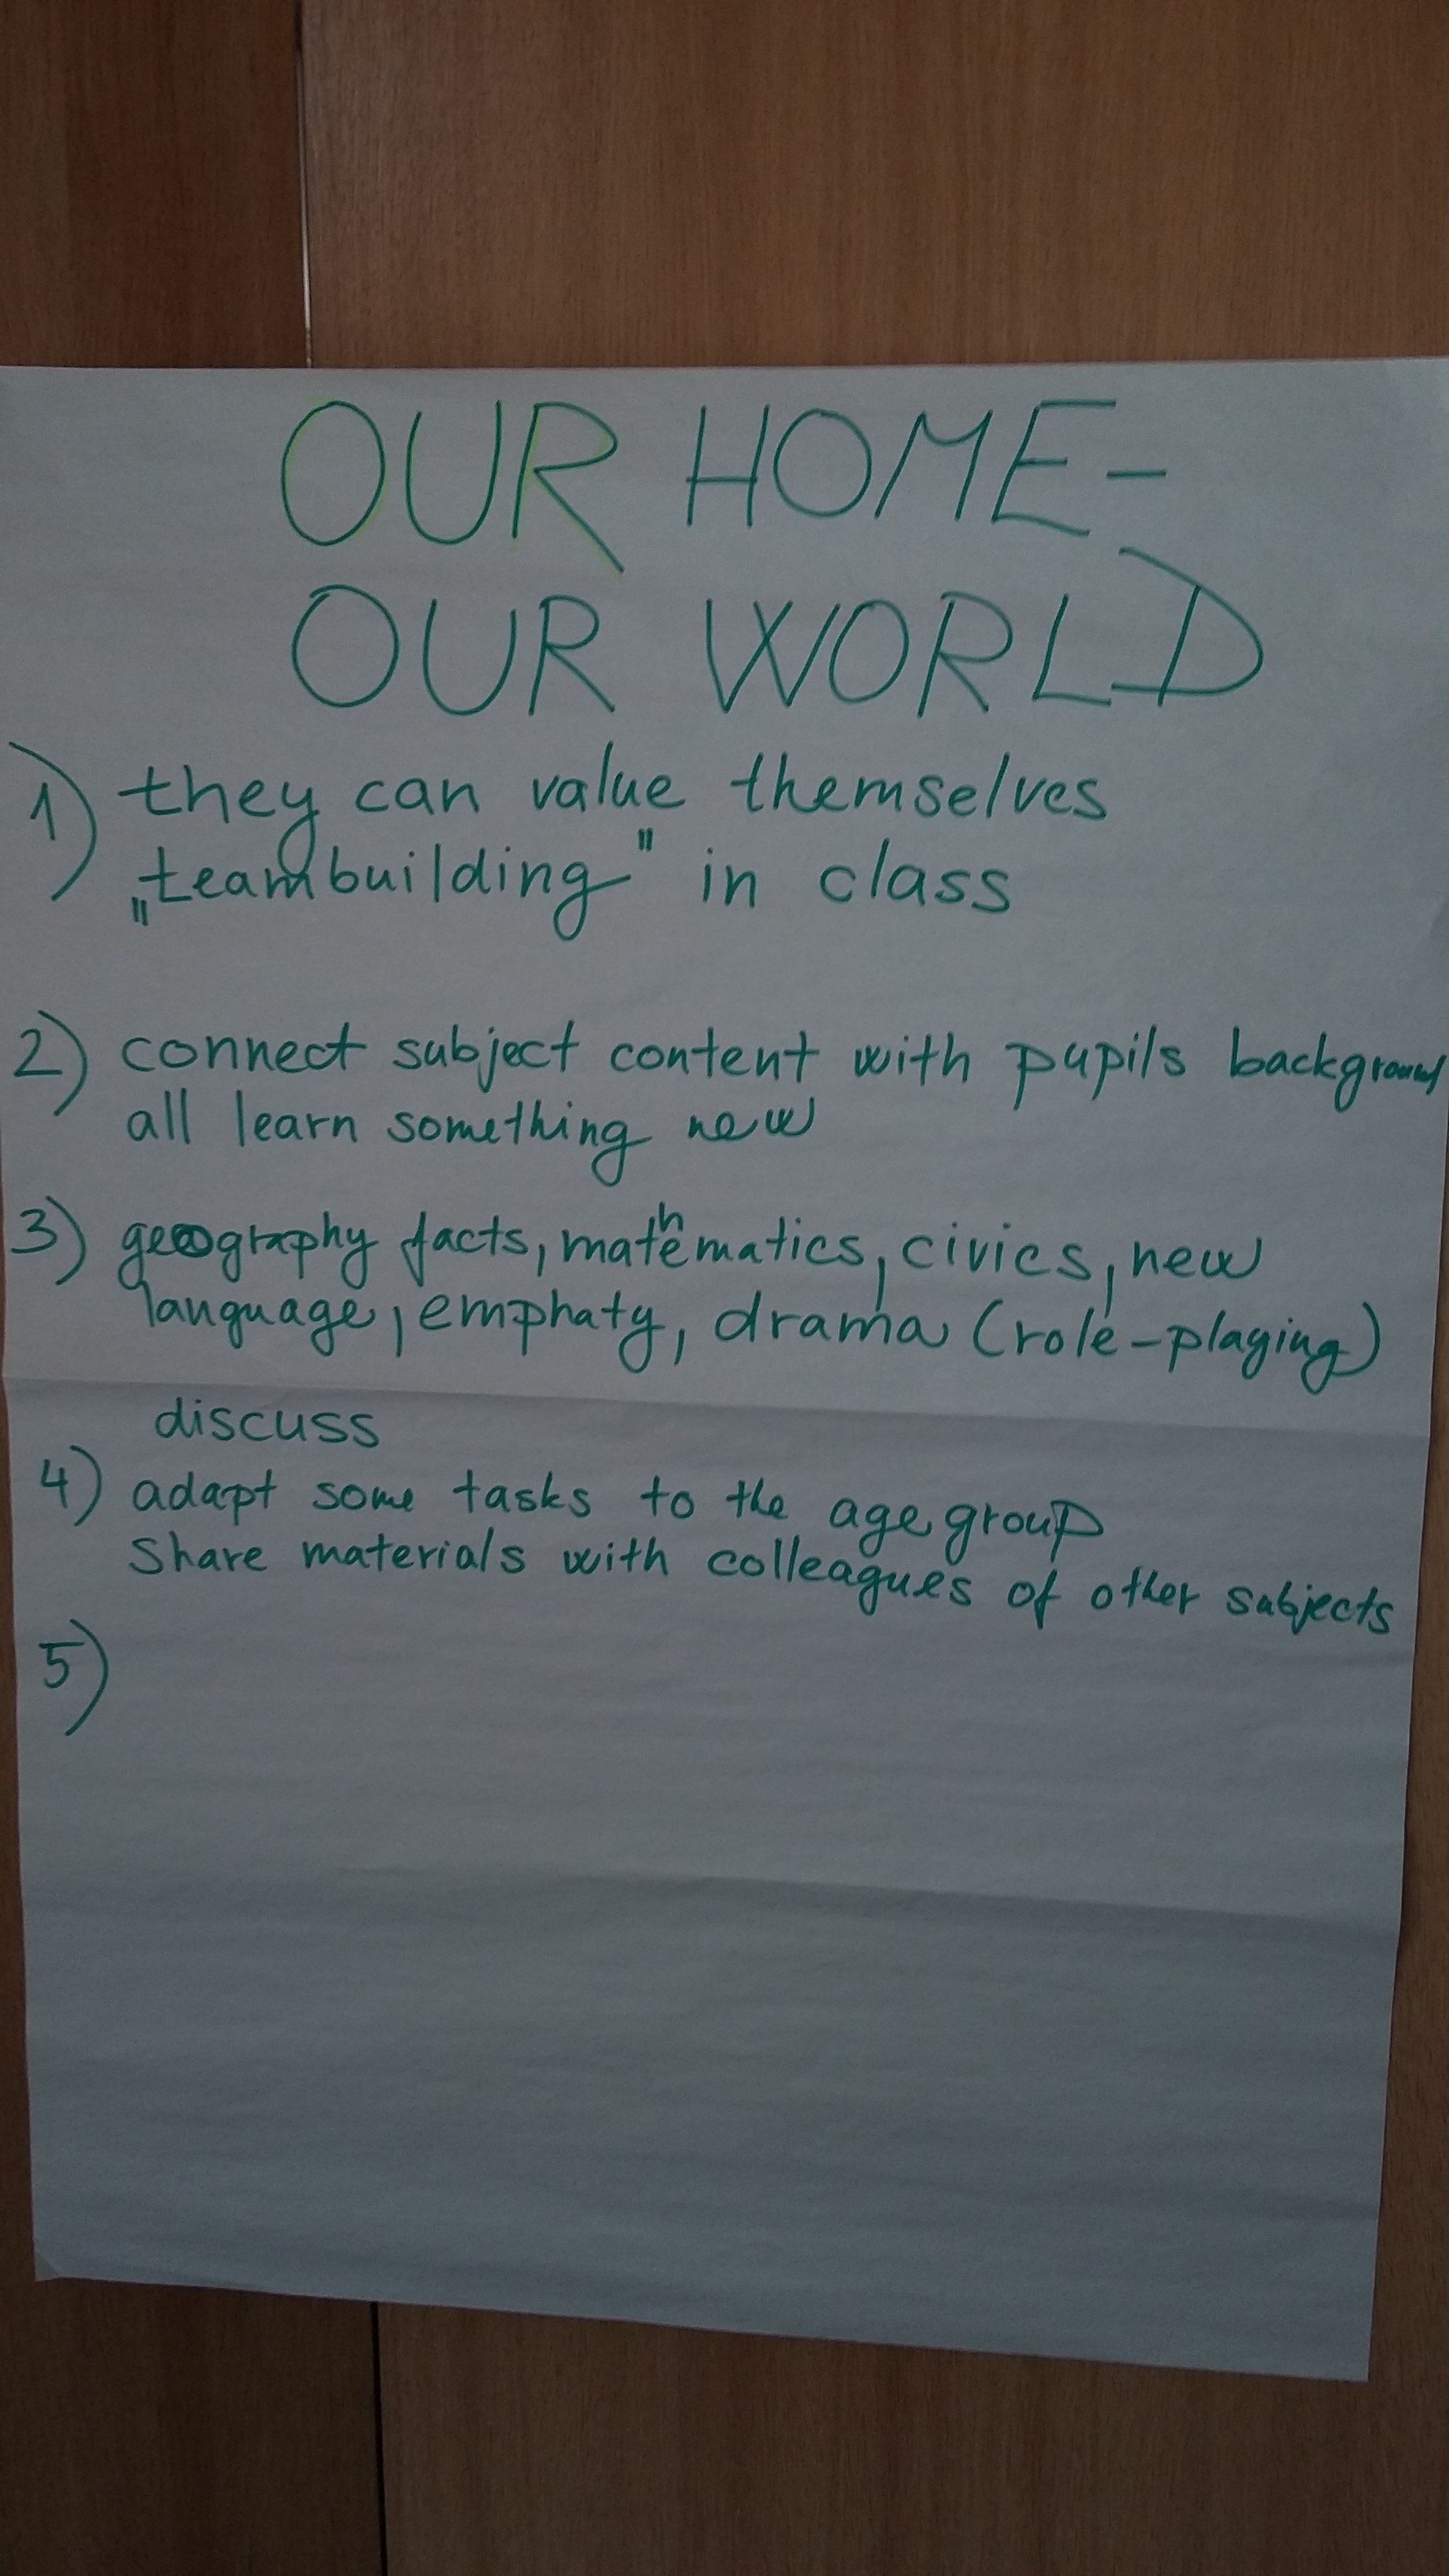 OUR HOME-
OUR WORLD
1) they can value themselves
„teambuilding" in class
2) connect subject content with pupils background
all learn something new
3) geography facts, mathematics, civics, new
language, emphaty, drama (role-playing)
discuss
4) adapt some tasks to the age group
Share materials with colleagues of other subjects
5)